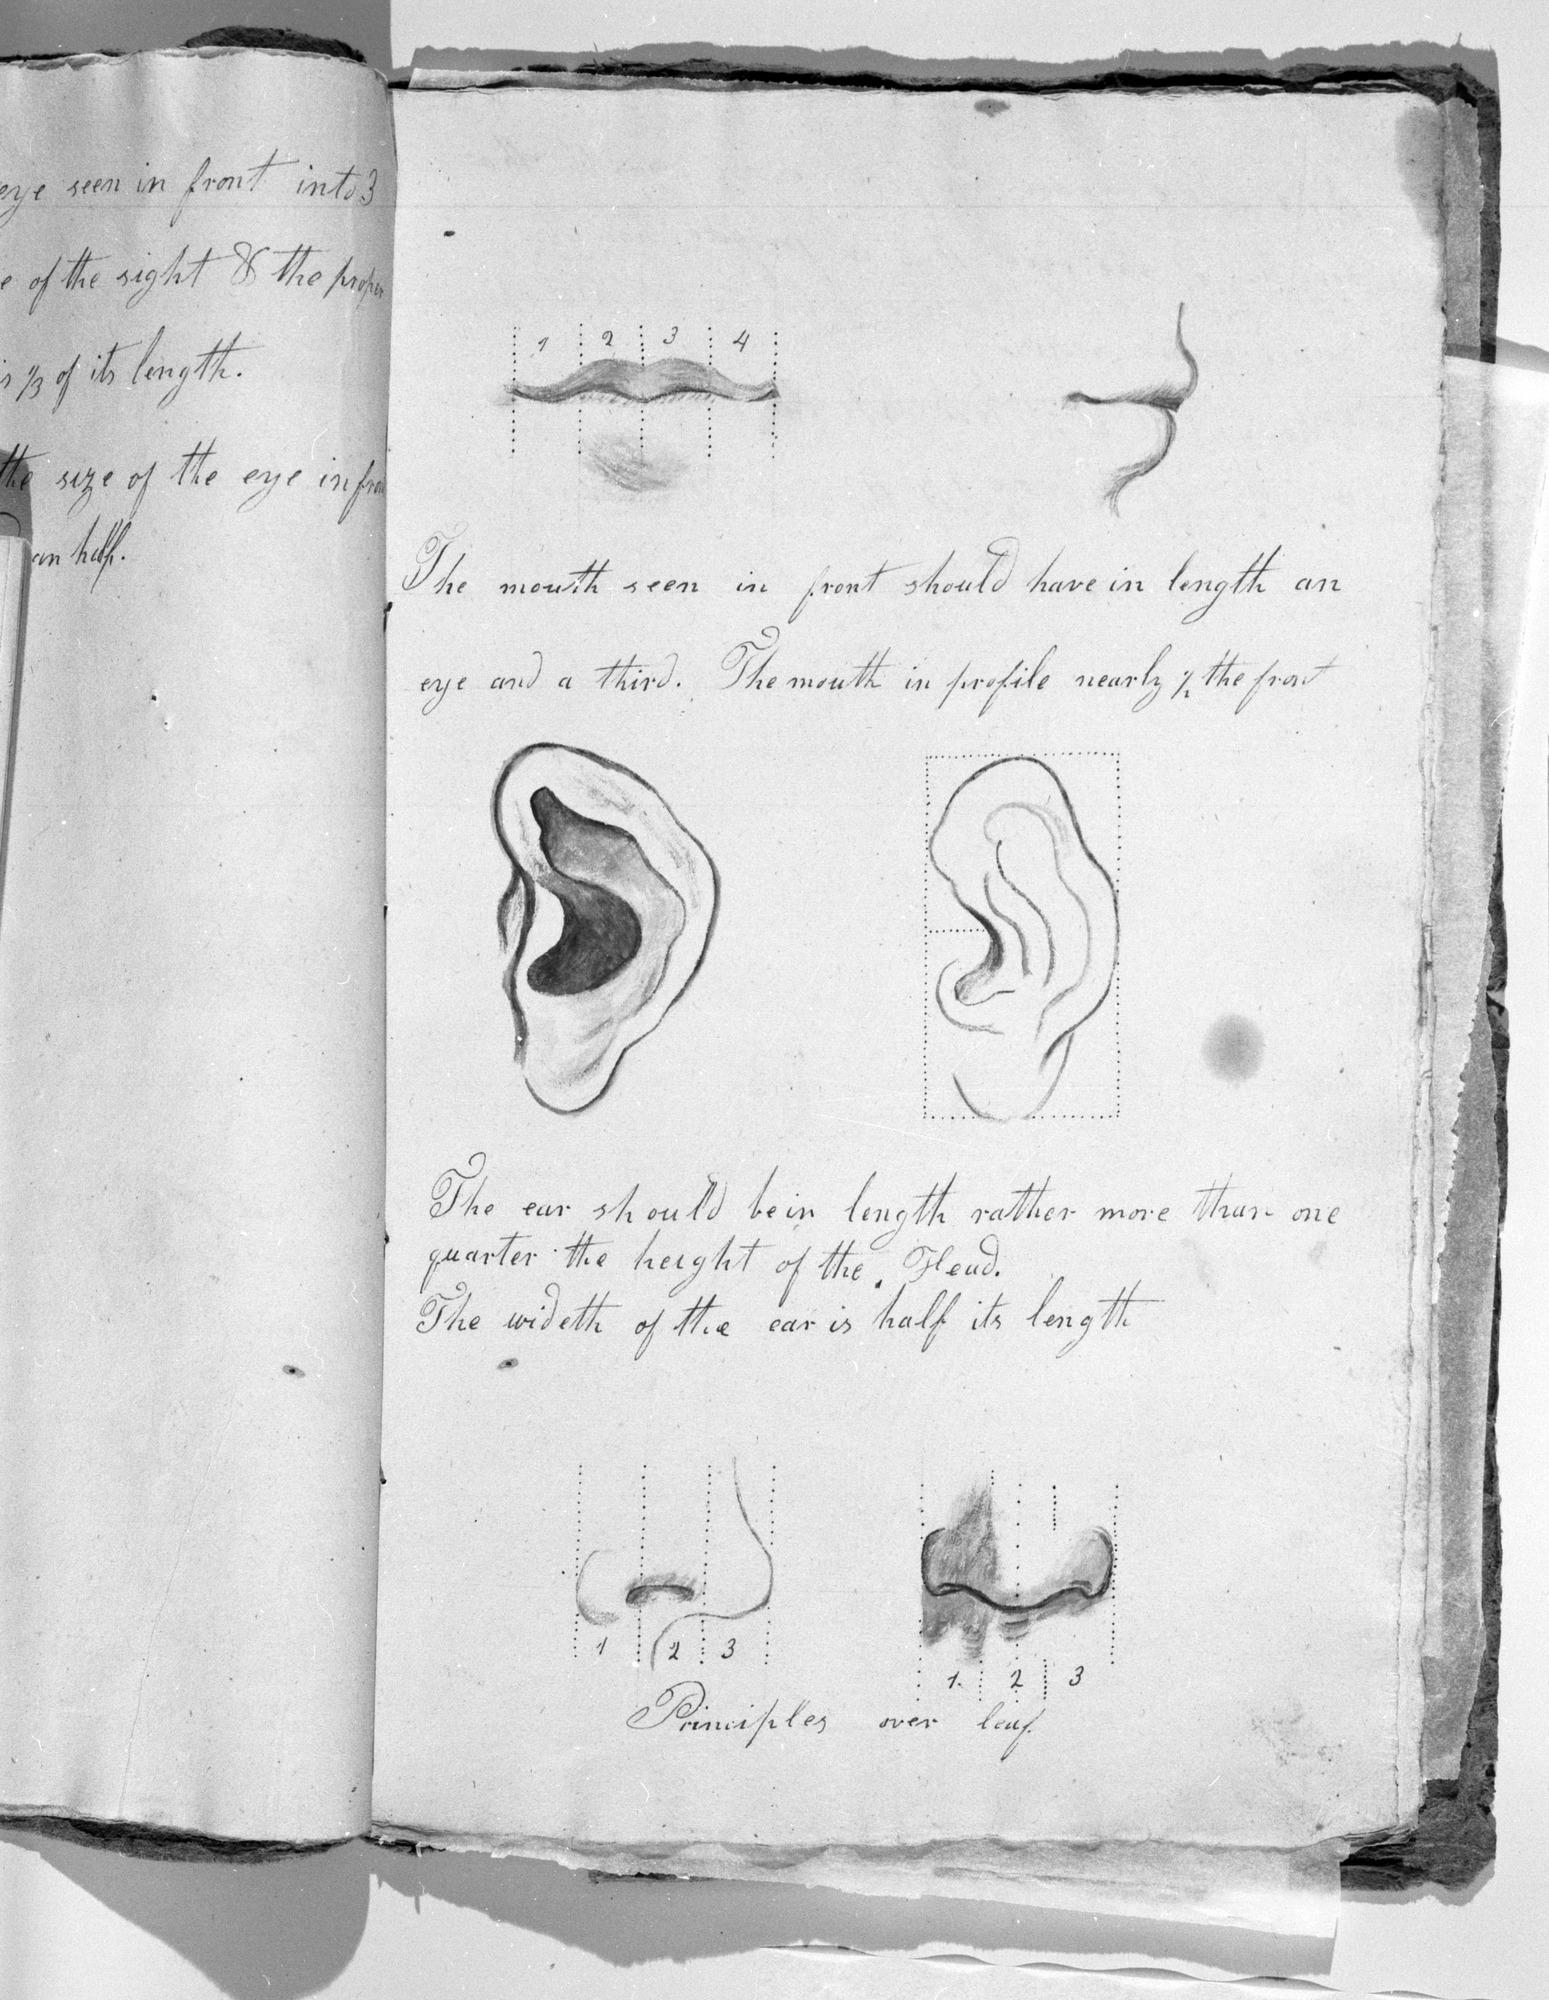 eye seen in front into 3
of the sight & the proper
1/3 of its length.
the size of the eye in
an half.
1 2 3 4
The mouth seen in front should have in length an
eye and a third. The mouth in profile nearly 1/2 the front
The ear should be in length rather more than one
quarter the height of the Head.
The wideth of the ear is half its length
1 2 3
1. 2 3
Principles over leaf